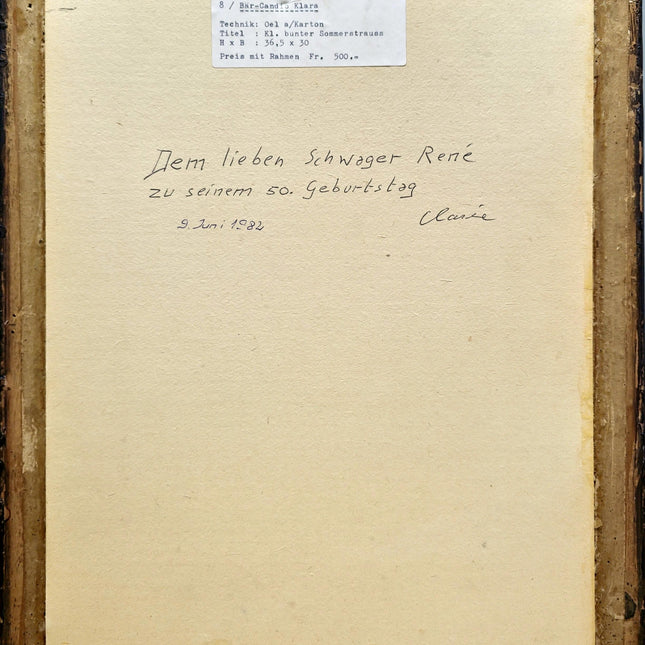 8 / Bär-Candio Klara
Technik: Oel a/Karton
Titel : Kl. bunter Sommerstrauss
H x B : 36,5 x 30
Preis mit Rahmen Fr. 500,=
Dem lieben Schwager René
zu seinem 50. Geburtstag
9. Juni 1982